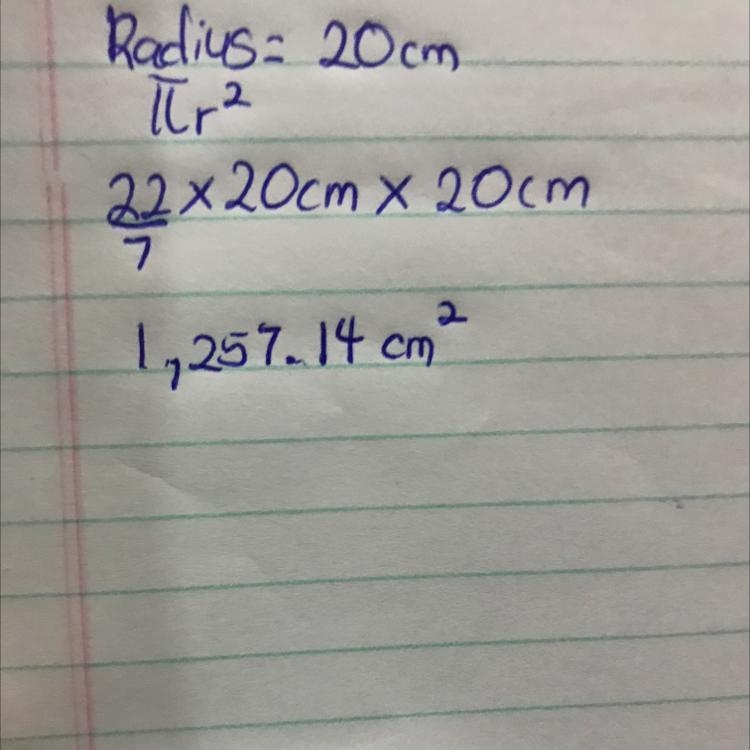 Radius = 20cm
πr²
22/7 × 20cm × 20cm
1,257.14 cm²